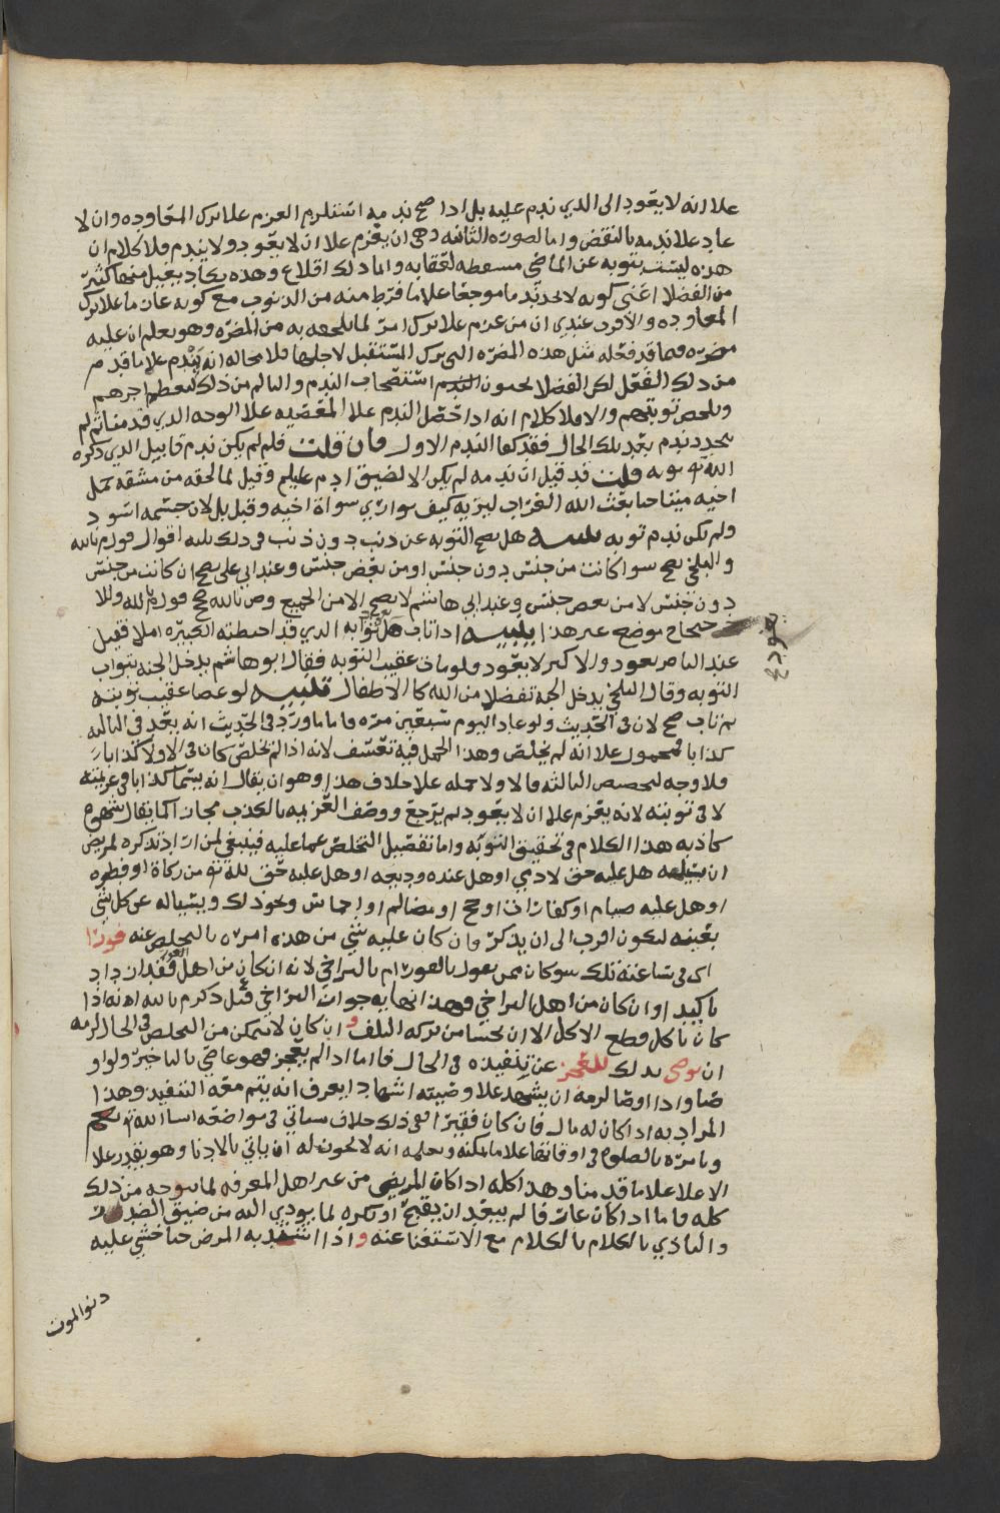 علا انه لا يعود الى الذي ندم عليه بل اذا صح ندمه استلزم العزم علا ترك المعاوده وان لا
عاد علا ندمه بالنقض واما الصوره الثانيه وهي ان يعزم علا ان لا يعود ولا يندم فلا كلام ان
هذه ليست بتوبه عن الماضي مسقطه لعقابه وانما ذلك اقلاع وهذه يكاد يغبل منها كثير
من الفضلا اعني كونه لا يجد ندما موجعا علا ما فرط منه من الذنوب مع كونه عازما علا ترك
المعاوده والاقرب عندي ان من عزم علا ترك امر لما يلحقه به من المضره وهو يعلم ان عليه
مضره فيما قد فعله مثل هذه المضره التي ترك المستقبل لاجلها فلا محاله انه يندم علا ما قدم
من ذلك الفعل لكن الفضلا يحبون استصحاب الندم والتالم من ذلك ليعظم اجرهم
وتلخص توبتهم والا فلا كلام انه اذا حصل الندم علا المعصيه علا الوجه الذي قدمنا ثم لم
يجدد ندم بعد تلك الحال فقد كفا الندم الاول فان قلت فلم لم يكن ندم قابيل الذي ذكره
الله تع توبه قلت قد قيل ان ندمه لم يكن الا لضيق ادم عليلم وقيل لما لحقه من مشقه حمل
اخيه ميتا حتا بعث الله الغراب ليريه كيف يواري سواة اخيه وقيل بل لان جسمه اسود
ولم يكن ندم توبه تنبيه هل يصح التوبه عن ذنب دون ذنب في ذلك ثلثه اقوال فورم بالله
والبلخي يصح سوا كانت من جنس دون جنس او من بعض جنس وعند ابي علي يصح ان كانت من جنس
دون جنس لا من بعض جنس وعند ابي هاشم لا يصح الا من الجميع وص بالله صح فورم بالله وللا
حتجاج موضع غير هذا تنبيه اذا تاب هل ثوابه الذي قد احبطته الكبيره ام لا فقيل
يعود ع
عند الناصر يعود والاكثر لا يعود فلو مات عقيب التوبه فقال ابو هاشم يدخل الجنه بثواب
التوبه وقال البلخي يدخل الجنه تفضلا من الله كالاطفال تنبيه لو عصا عقيب توبته
ثم تاب صح لان في الحديث ولو عاد اليوم سبعين مره فاما ما ورد في الحديث انه يعد في الثالثه
كذابا فمحمول علا انه لم يخلص وهذا الحمل فيه تعسف لانه اذا لم يخلص كان في الاولا كذابا
فلا وجه لتخصيص الثالثه فالاولا حمله علا خلاف هذا وهو ان يقال انه يسما كذابا في عزيمته
لا في توبته لانه يعزم علا ان لا يعود ثم يرجع ووصف العزيمه بالكذب مجازا كما يقال شهوه
كاذبه هذا الكلام في تحقيق التوبه واما تفصيل التخلص عما عليه فينبغي لمن اراد تذكره لمريض
ان يسئله هل عليه حق لادمي او هل عنده وديعه او هل عليه حق لله تع من زكاة او فطره
او هل عليه صيام او كفارات او حج او مضالم او اخماس ونحو ذلك ويسياله عن كل شي
بعينه ليكون اقرب الى ان يذكر فان كان عليه شي من هذه امره بالتخلص عنه فورا
اى في ساعته تلك سو كان ممن يقول بالفور ام بالتراخي لانه ان كان من اهل الفور فقد ازداد
تاكيدا وان كان من اهل التراخي فهذا نهايه جواز التراخي قيل ذكرم بالله انه اذا
كان ياكل قطع الاكل الا ان يخشا من تركه التلف و ان كان لا يتمكن من التخلص في الحال لزمه
ان يوصي بذلك للعجز عن تنفيذه في الحال فاما اذا لم يعجز فهو عاصي بالتاخير ولو او
صا واذا اوصا لزمه ان يشهد علا وصيته اشهادا يعرف انه يتم معه التنفيذ وهذا
المراد به اذا كان له مال فان كان فقيرا ففي ذلك خلاف سياتي في مواضعه انشا الله تع
ويامره بالصلوه في اوقاتها علا ما يمكنه ويعلمه انه لا يجوز له ان ياتي بالادنا وهو يقدر علا
الاعلا علا ما قدمنا وهذا كله اذا كان المريض من غير اهل المعرفه لما يتوجه من ذلك
كله فاما اذا كان عارفا لم يبعد ان يقبح او يكره لما يودي اليه من ضيق الصدر
والتاذي بالكلام بالكلام مع الاستغنا عنه واذا اشتد به المرض حتا خشي عليه
دنو الموت